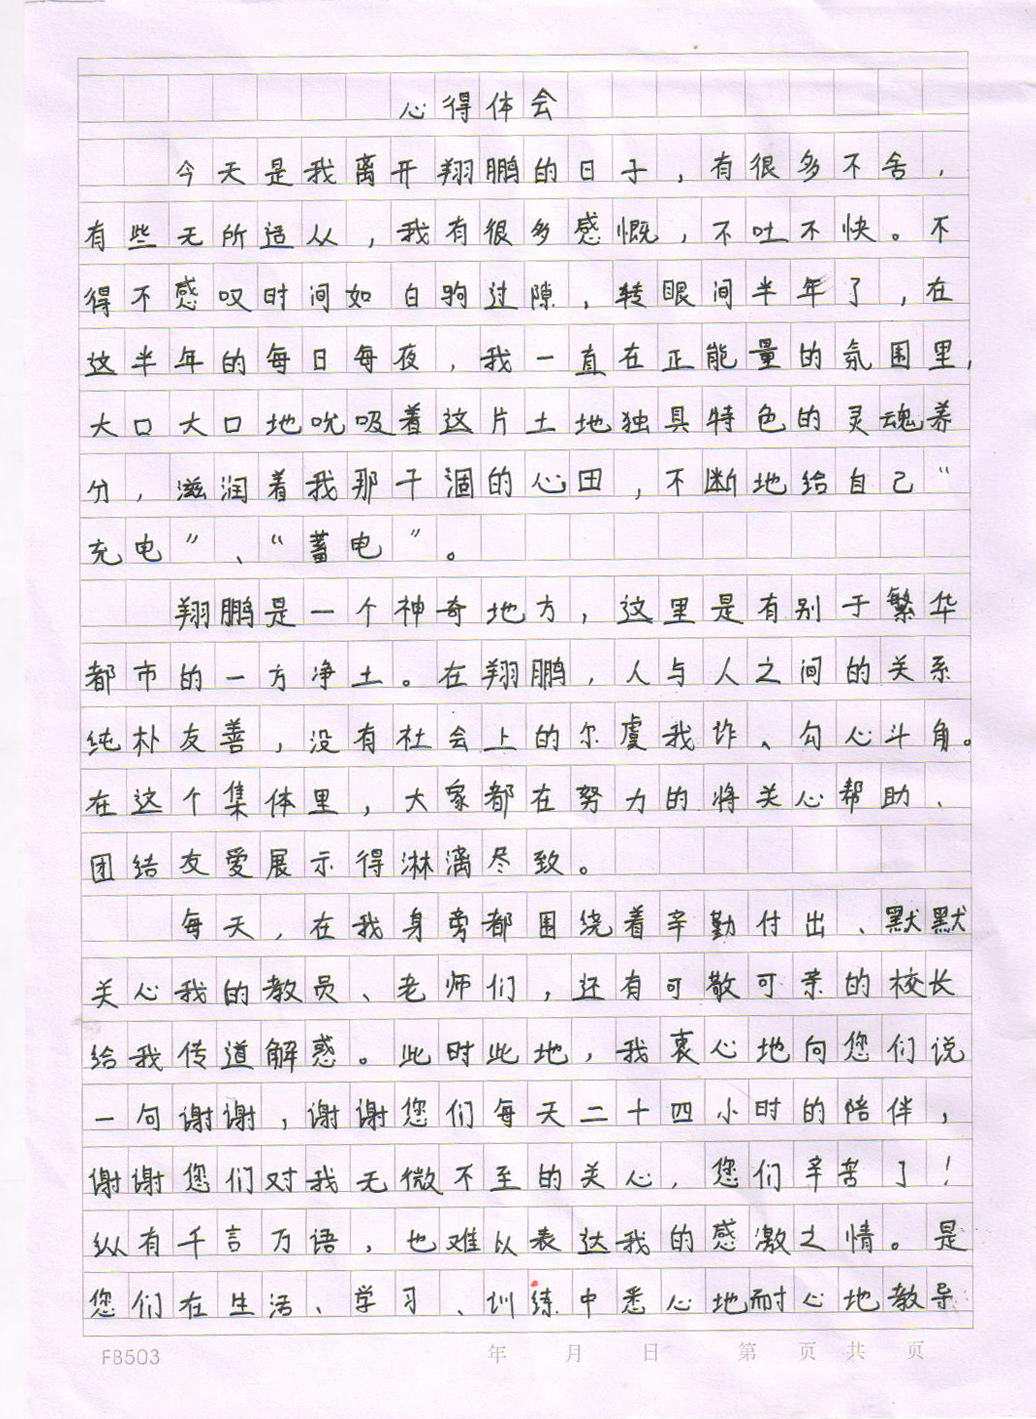 心得体会
今天是我离开翔鹏的日子，有很多不舍，
有些无所适从，我有很多感慨，不吐不快。不
得不感叹时间如白驹过隙，转眼间半年了，在
这半年的每日每夜，我一直在正能量的氛围里，
大口大口地吮吸着这片土地独具特色的灵魂养
分，滋润着我那干涸的心田，不断地给自己“
充电”、“蓄电”。
翔鹏是一个神奇地方，这里是有别于繁华
都市的一方净土。在翔鹏，人与人之间的关系
纯朴友善，没有社会上的尔虞我诈、勾心斗角。
在这个集体里，大家都在努力的将关心帮助、
团结友爱展示得淋漓尽致。
每天，在我身旁都围绕着辛勤付出、默默
关心我的教员、老师们，还有可敬可亲的校长
给我传道解惑。此时此地，我衷心地向您们说
一句谢谢，谢谢您们每天二十四小时的陪伴，
谢谢您们对我无微不至的关心，您们辛苦了！
纵有千言万语，也难以表达我的感激之情。是
您们在生活、学习、训练中悉心地耐心地教导
FB503 年 月 日 第 页 共 页